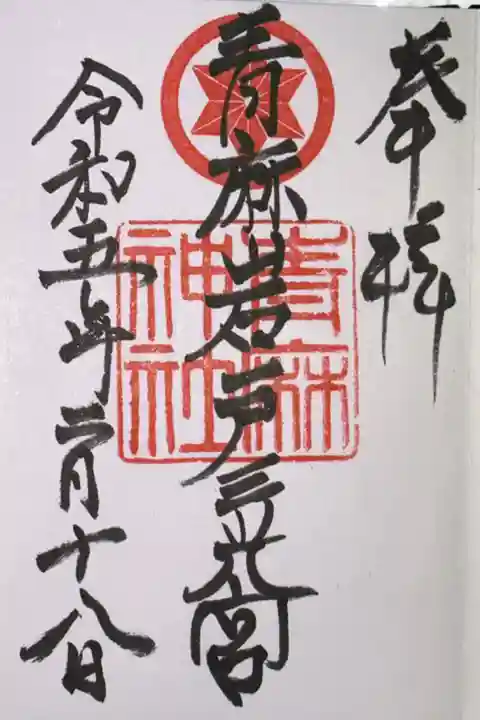 奉拝
青麻岩戸三光宮
青麻
神社
令和五年二月十八日